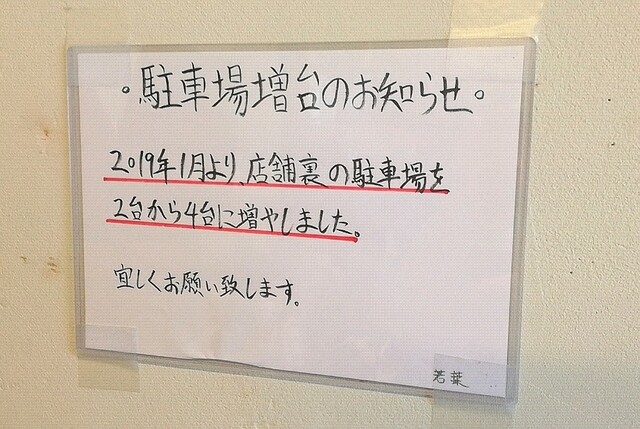 。駐車場増台のお知らせ。
2019年1月より、店舗裏の駐車場を
2台から4台に増やしました。
宜しくお願い致します。
若葉